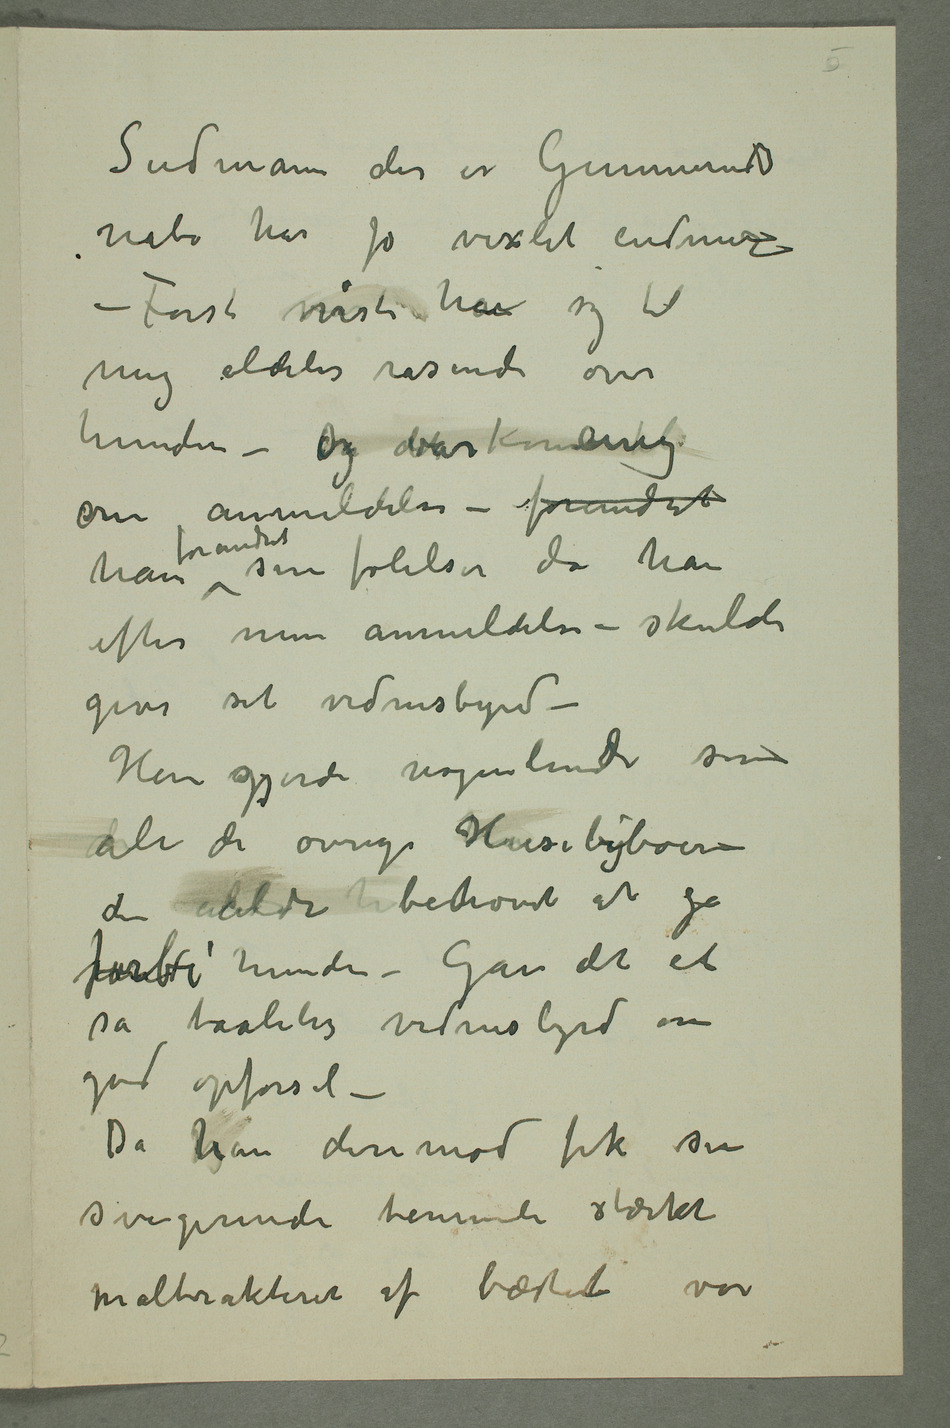 5
Sudmann der er Gunnerud
nabo har jo vexlet endnu
– Først viste han sig til
mig aldeles rasende over
hunden – Og var
om anmeldelse – forandret
han forandret sine følelser da han
efter min anmeldelse – skulde
give sit vidnesbyrd –
Han gjorde nogenlunde som
ale de øvrige Husebyboere
der behøvet at gå
forbi hunden – Gav det et
så taaleligt vidnesbyrd om
god opførsel –
Da han derimod fik sin
svigerinde temmele stærkt
maltrakteret af bæstet var